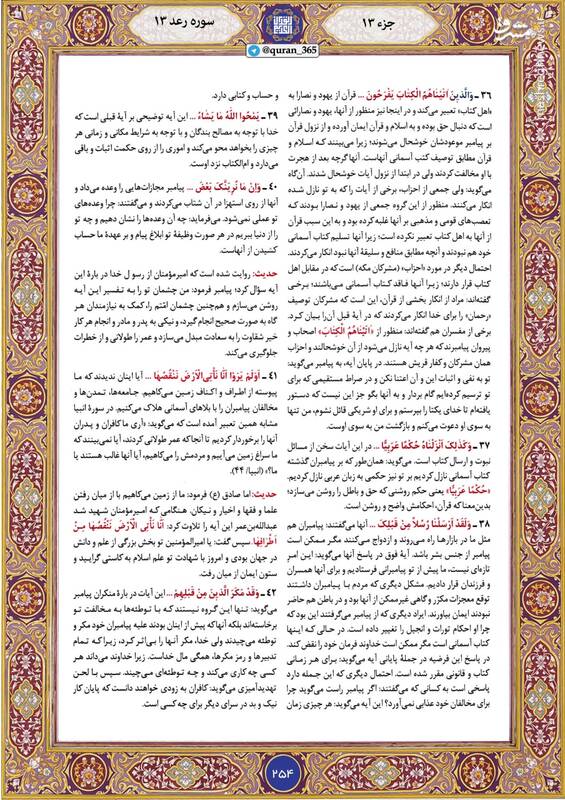 جزء ۱۳
سوره رعد ۱۳
@quran_365
مشرق
۳۶ ـ وَالَّذِينَ آتَيْنَاهُمُ الْكِتَابَ يَفْرَحُونَ ... قرآن از یهود و نصارا به
«اهل کتاب» تعبیر می‌کند و در اینجا نیز منظور از آنها، یهود و نصارائی
است که دنبال حق بوده و به اسلام و قرآن ایمان آورده و از نزول قرآن
بر پیامبر موعودشان خوشحال می‌شوند؛ زیرا می‌بینند که اسلام و
قرآن مطابق توصیف کتب آسمانی آنهاست. آنها گرچه بعد از هجرت
با او مخالفت کردند ولی در ابتدا از نزول آیات خوشحال شدند. آن‌گاه
می‌گوید: ولی جمعی از احزاب، برخی از آیات را که به تو نازل شده
انکار می‌کنند. منظور از این گروه جمعی از یهود و نصارا بودند که
تعصب‌های قومی و مذهبی بر آنها غلبه کرده بود و به این سبب قرآن
از آنها به اهل کتاب تعبیر نکرده است؛ زیرا آنها تسلیم کتاب آسمانی
خود هم نبودند و آنچه مطابق منافع و سلیقهٔ آنها نبود انکار می‌کردند.
احتمال دیگر در مورد «احزاب» (مشرکان مکه) است که در مقابل اهل
کتاب قرار دارند؛ زیرا آنها فاقد کتاب آسمانی می‌باشند؛ برخی
گفته‌اند: مراد از انکار بخشی از قرآن، این است که مشرکان توصیف
«رحمان» را برای خدا انکار می‌کردند که در آیهٔ قبل آن‌را بیان کرد.
برخی از مفسران هم گفته‌اند: منظور از «آتَيْنَاهُمُ الْكِتَابَ» اصحاب و
پیروان پیامبرند که هر چه آیه نازل می‌شود از آن خوشحالند و احزاب
همان مشرکان و کفار قریش هستند. در پایان آیه، به پیامبر می‌گوید:
تو به نفی و اثبات این و آن اعتنا نکن و در صراط مستقیمی که برای
تو ترسیم کرده‌ایم گام بردار و به آنها بگو جز این نیست که دستور
یافته‌ام تا خدای یکتا را بپرستم و برای او شریکی قائل نشوم، من تنها
به سوی او دعوت می‌کنم و بازگشت من به سوی اوست.
۳۷ ـ وَكَذَلِكَ أَنْزَلْنَاهُ حُكْمًا عَرَبِيًّا ... در این آیات سخن از مسائل
نبوت و ارسال کتاب است. می‌گوید: همان‌طور که بر پیامبران گذشته
کتاب آسمانی نازل کردیم بر تو نیز حکمی به زبان عربی نازل کردیم.
«حُكْمًا عَرَبِيًّا» یعنی حکم روشنی که حق و باطل را روشن می‌سازد؛
بدین‌معنا که قرآن، احکامش واضح و روشن است.
۳۸ ـ وَلَقَدْ أَرْسَلْنَا رُسُلًا مِنْ قَبْلِكَ ... آنها می‌گفتند: پیامبران هم
مثل ما در بازارها راه می‌روند و ازدواج می‌کنند مگر ممکن است
پیامبر از جنس بشر باشد. آیهٔ فوق در پاسخ آنها می‌گوید: این امر
تازه‌ای نیست، ما پیش از تو پیامبرانی فرستادیم و برای آنها همسران
و فرزندان قرار دادیم. مشکل دیگری که مردم با پیامبران داشتند
توقع معجزات مکرّر و گاهی غیرممکن از آنها بود و در باطن هم حاضر
نبودند ایمان بیاورند. ایراد دیگری که از پیامبر می‌گرفتند این بود که
چرا او احکام تورات و انجیل را تغییر داده است. در حالی‌ که اینها
کتاب آسمانی است مگر ممکن است خداوند فرمان خود را نقض کند.
در پاسخ این فرضیه در جملهٔ پایانی آیه می‌گوید: برای هر زمانی
کتاب و قانونی مقرر شده است. احتمال دیگری که این جمله دارد
پاسخی است به کسانی که می‌گفتند: اگر پیامبر راست می‌گوید چرا
برای مخالفان خود عذابی نمی‌آورد؟ این آیه می‌گوید: هر چیزی زمان
و حساب و کتابی دارد.
۳۹ ـ يَمْحُوا اللَّهُ مَا يَشَاءُ ... این آیه توضیحی بر آیهٔ قبلی است که
خدا با توجه به مصالح بندگان و با توجه به شرایط مکانی و زمانی هر
چیزی را بخواهد محو می‌کند و اموری را از روی حکمت اثبات و باقی
می‌دارد و ام‌الکتاب نزد اوست.
۴۰ ـ وَإِنْ مَا نُرِيَنَّكَ بَعْضَ ... پیامبر مجازات‌هایی را وعده می‌داد و
آنها از روی استهزا در آن شتاب می‌کردند و می‌گفتند: چرا وعده‌های
تو عملی نمی‌شود. می‌فرماید: چه آن وعده‌ها را نشان دهیم و چه تو
را از دنیا ببریم در هر صورت وظیفهٔ تو ابلاغ پیام و بر عهدهٔ ما حساب
کشیدن از آنهاست.
حدیث: روایت شده است که امیرمؤمنان از رسول خدا در بارهٔ این
آیه سؤال کرد؛ پیامبر فرمود: من چشمان تو را به تفسیر این آیه
روشن می‌سازم و هم‌چنین چشمان امّتم را، کمک به نیازمندان هر
گاه به صورت صحیح انجام گیرد، و نیکی به پدر و مادر و انجام هر کار
خیر شقاوت را به سعادت مبدل می‌سازد و عمر را طولانی و از خطرات
جلوگیری می‌کند.
۴۱ ـ أَوَلَمْ يَرَوْا أَنَّا نَأْتِي الْأَرْضَ نَنْقُصُهَا ... آیا اینان ندیدند که ما
پیوسته از اطراف و اکناف زمین می‌کاهیم. جامعه‌ها، تمدن‌ها و
مخالفان پیامبران را با بلاهای آسمانی هلاک می‌کنیم. در سورهٔ انبیا
مشابه همین تعبیر آمده است که می‌گوید: «آری ما کافران و پدران
آنها را برخوردار کردیم تا آنجا که عمر طولانی کردند، آیا نمی‌بینند که
ما سراغ زمین می‌آییم و مردمش را می‌کاهیم، آیا آنها غالب هستند یا
ما؟» (انبیا/ ۴۴).
حدیث: امام صادق (ع) فرمود: ما از زمین می‌کاهیم با از میان رفتن
علما و فقها و اخیار و نیکان. هنگامی که امیرمؤمنان شهید شد
عبدالله‌بن‌عمر این آیه را تلاوت کرد: أَنَّا نَأْتِي الْأَرْضَ نَنْقُصُهَا مِنْ
أَطْرَافِهَا سپس گفت: یا امیرالمؤمنین تو بخش بزرگی از علم و دانش
در جهان بودی و امروز با شهادت تو علم اسلام به کاستی گرایید و
ستون ایمان از میان رفت.
۴۲ ـ وَقَدْ مَكَرَ الَّذِينَ مِنْ قَبْلِهِمْ ... این آیات در بارهٔ منکران پیامبر
می‌گوید: تنها این گروه نیستند که با توطئه‌ها به مخالفت تو
برخاسته‌اند بلکه آنها که پیش از اینان بودند علیه پیامبران خود مکر و
توطئه می‌چیدند ولی خدا، مکر آنها را بی‌اثر کرد، زیرا که تمام
تدبیرها و رمز مکرها، همگی مال خداست. زیرا خداوند می‌داند هر
کسی چه کاری می‌کند و چه توطئه‌ای می‌چیند. سپس با لحن
تهدیدآمیزی می‌گوید: کافران به زودی خواهند دانست که پایان کار
نیک و بد در سرای دیگر برای چه کسی است.
۲۵۴